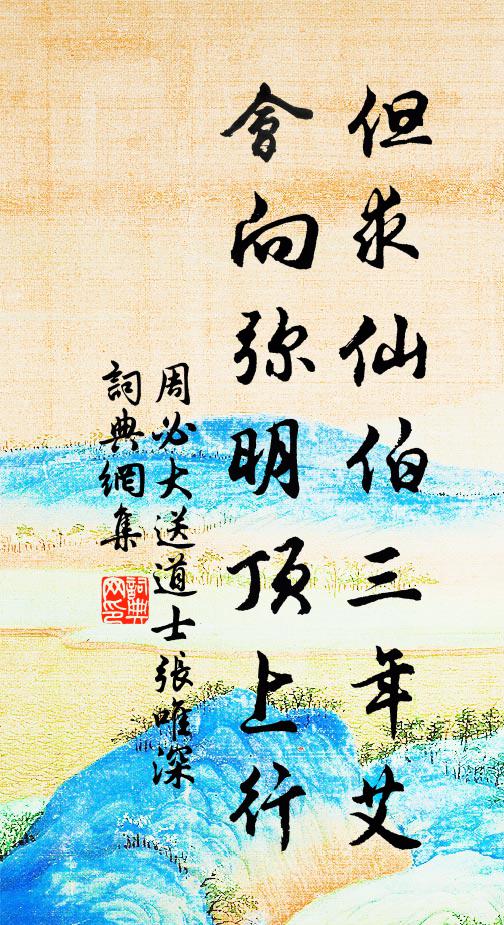 但求仙伯三年艾
會向弥明頂上行
周必大送道士張唯深
詞典網集
詞典